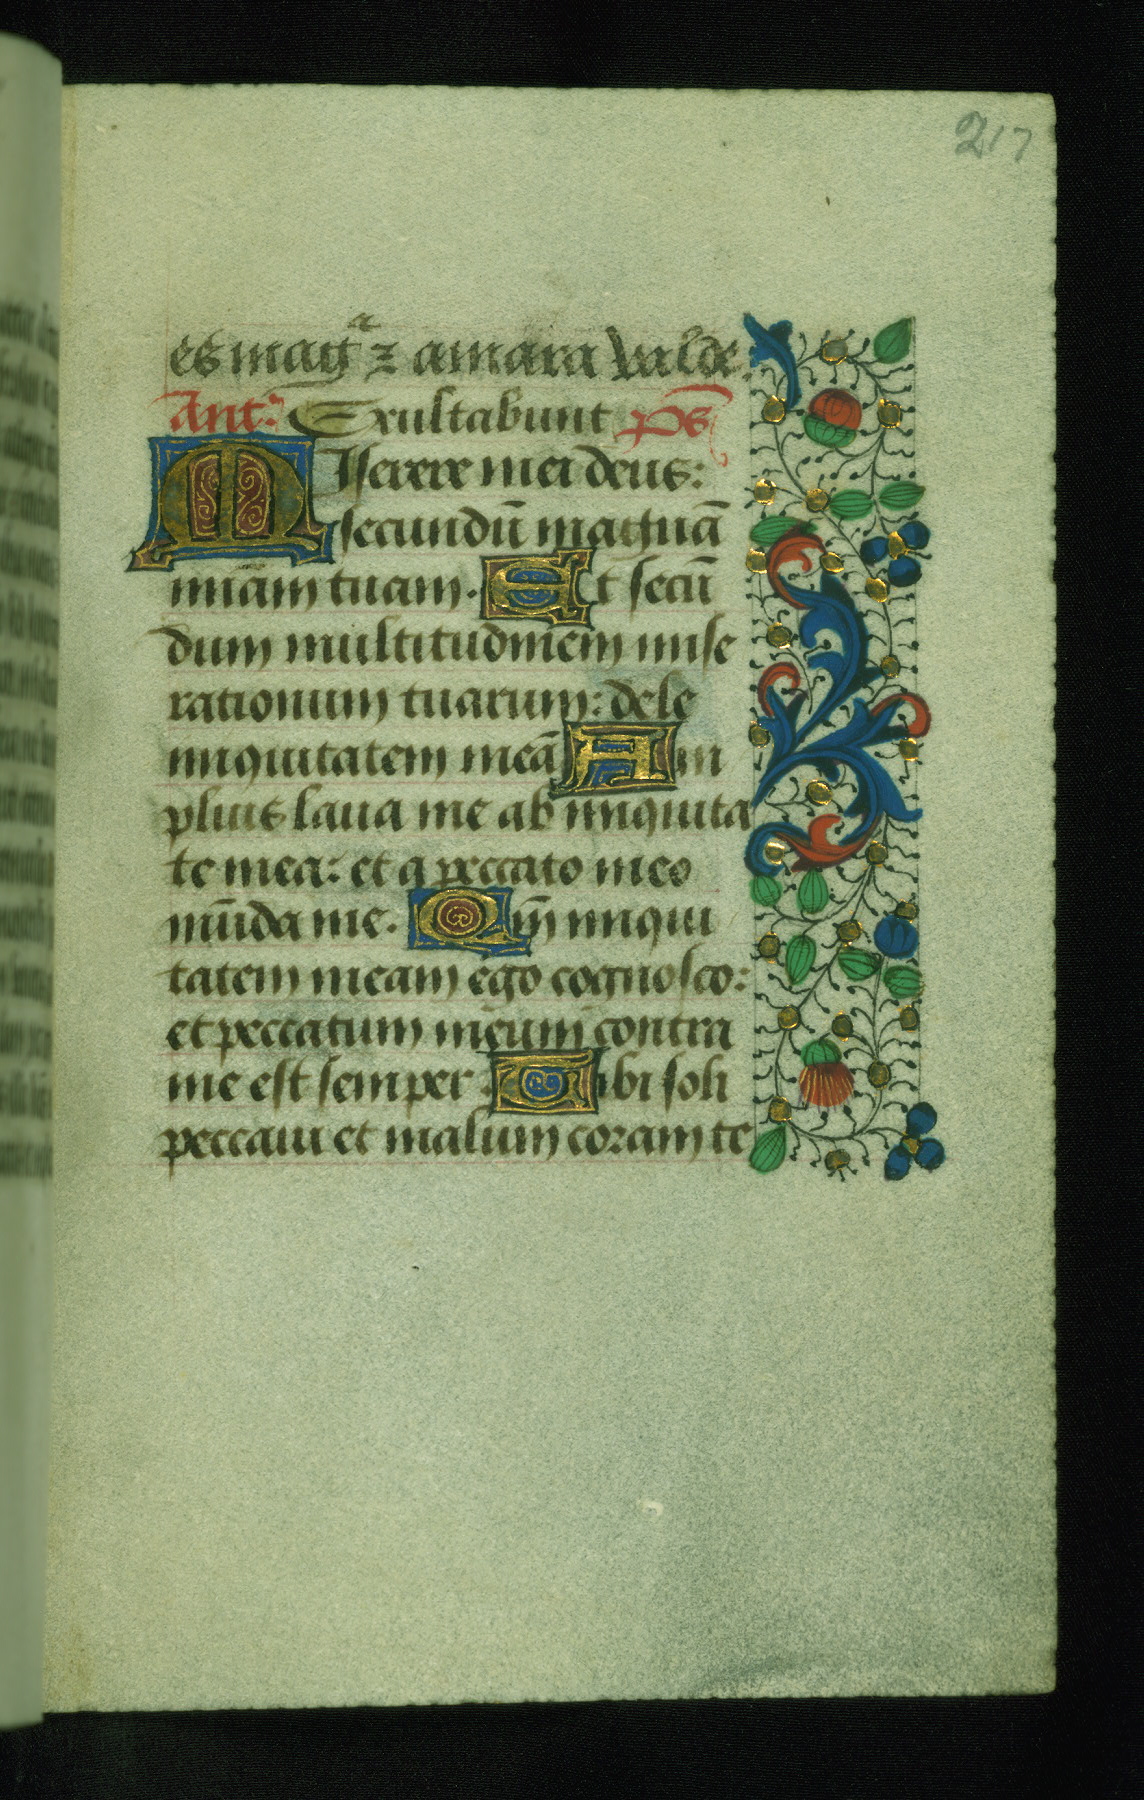 217
es mag^a z amara valde.
Ant. Exultabunt ps
Miserere mei deus:
secundū magnā
miām tuam. Et secū
dum multitudinem mise
rationum tuarum: dele
iniquitatem meā Am
plius laua me ab iniquita
te mea: et a peccato meo
mūda me. Qm̄ iniqui
tatem meam ego cognosco:
et peccatum meum contra
me est semper. Tibi soli
peccaui et malum coram te